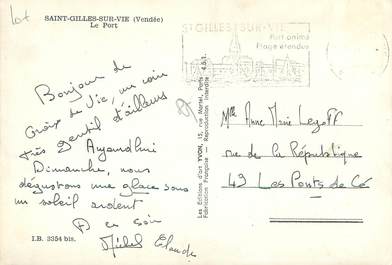 Lot
SAINT-GILLES-SUR-VIE (Vendée)
Le Port
ST GILLES-SUR-VIE
Port animé
Plage étendue
Bonjour de
Croix de Vie, un coin
très gentil d'ailleurs
Aujourd'hui
Dimanche, nous
dégustons une glace sous
un soleil ardent
A ce soir
Michel Claude
I.B. 3354 bis.
Les Editions d'art YVON, 15, rue Martel, Paris - 4.5.1.
Fabrication Française - Reproduction interdite
Mlle Anne Marie
rue de la République
49 Les Ponts de Cé